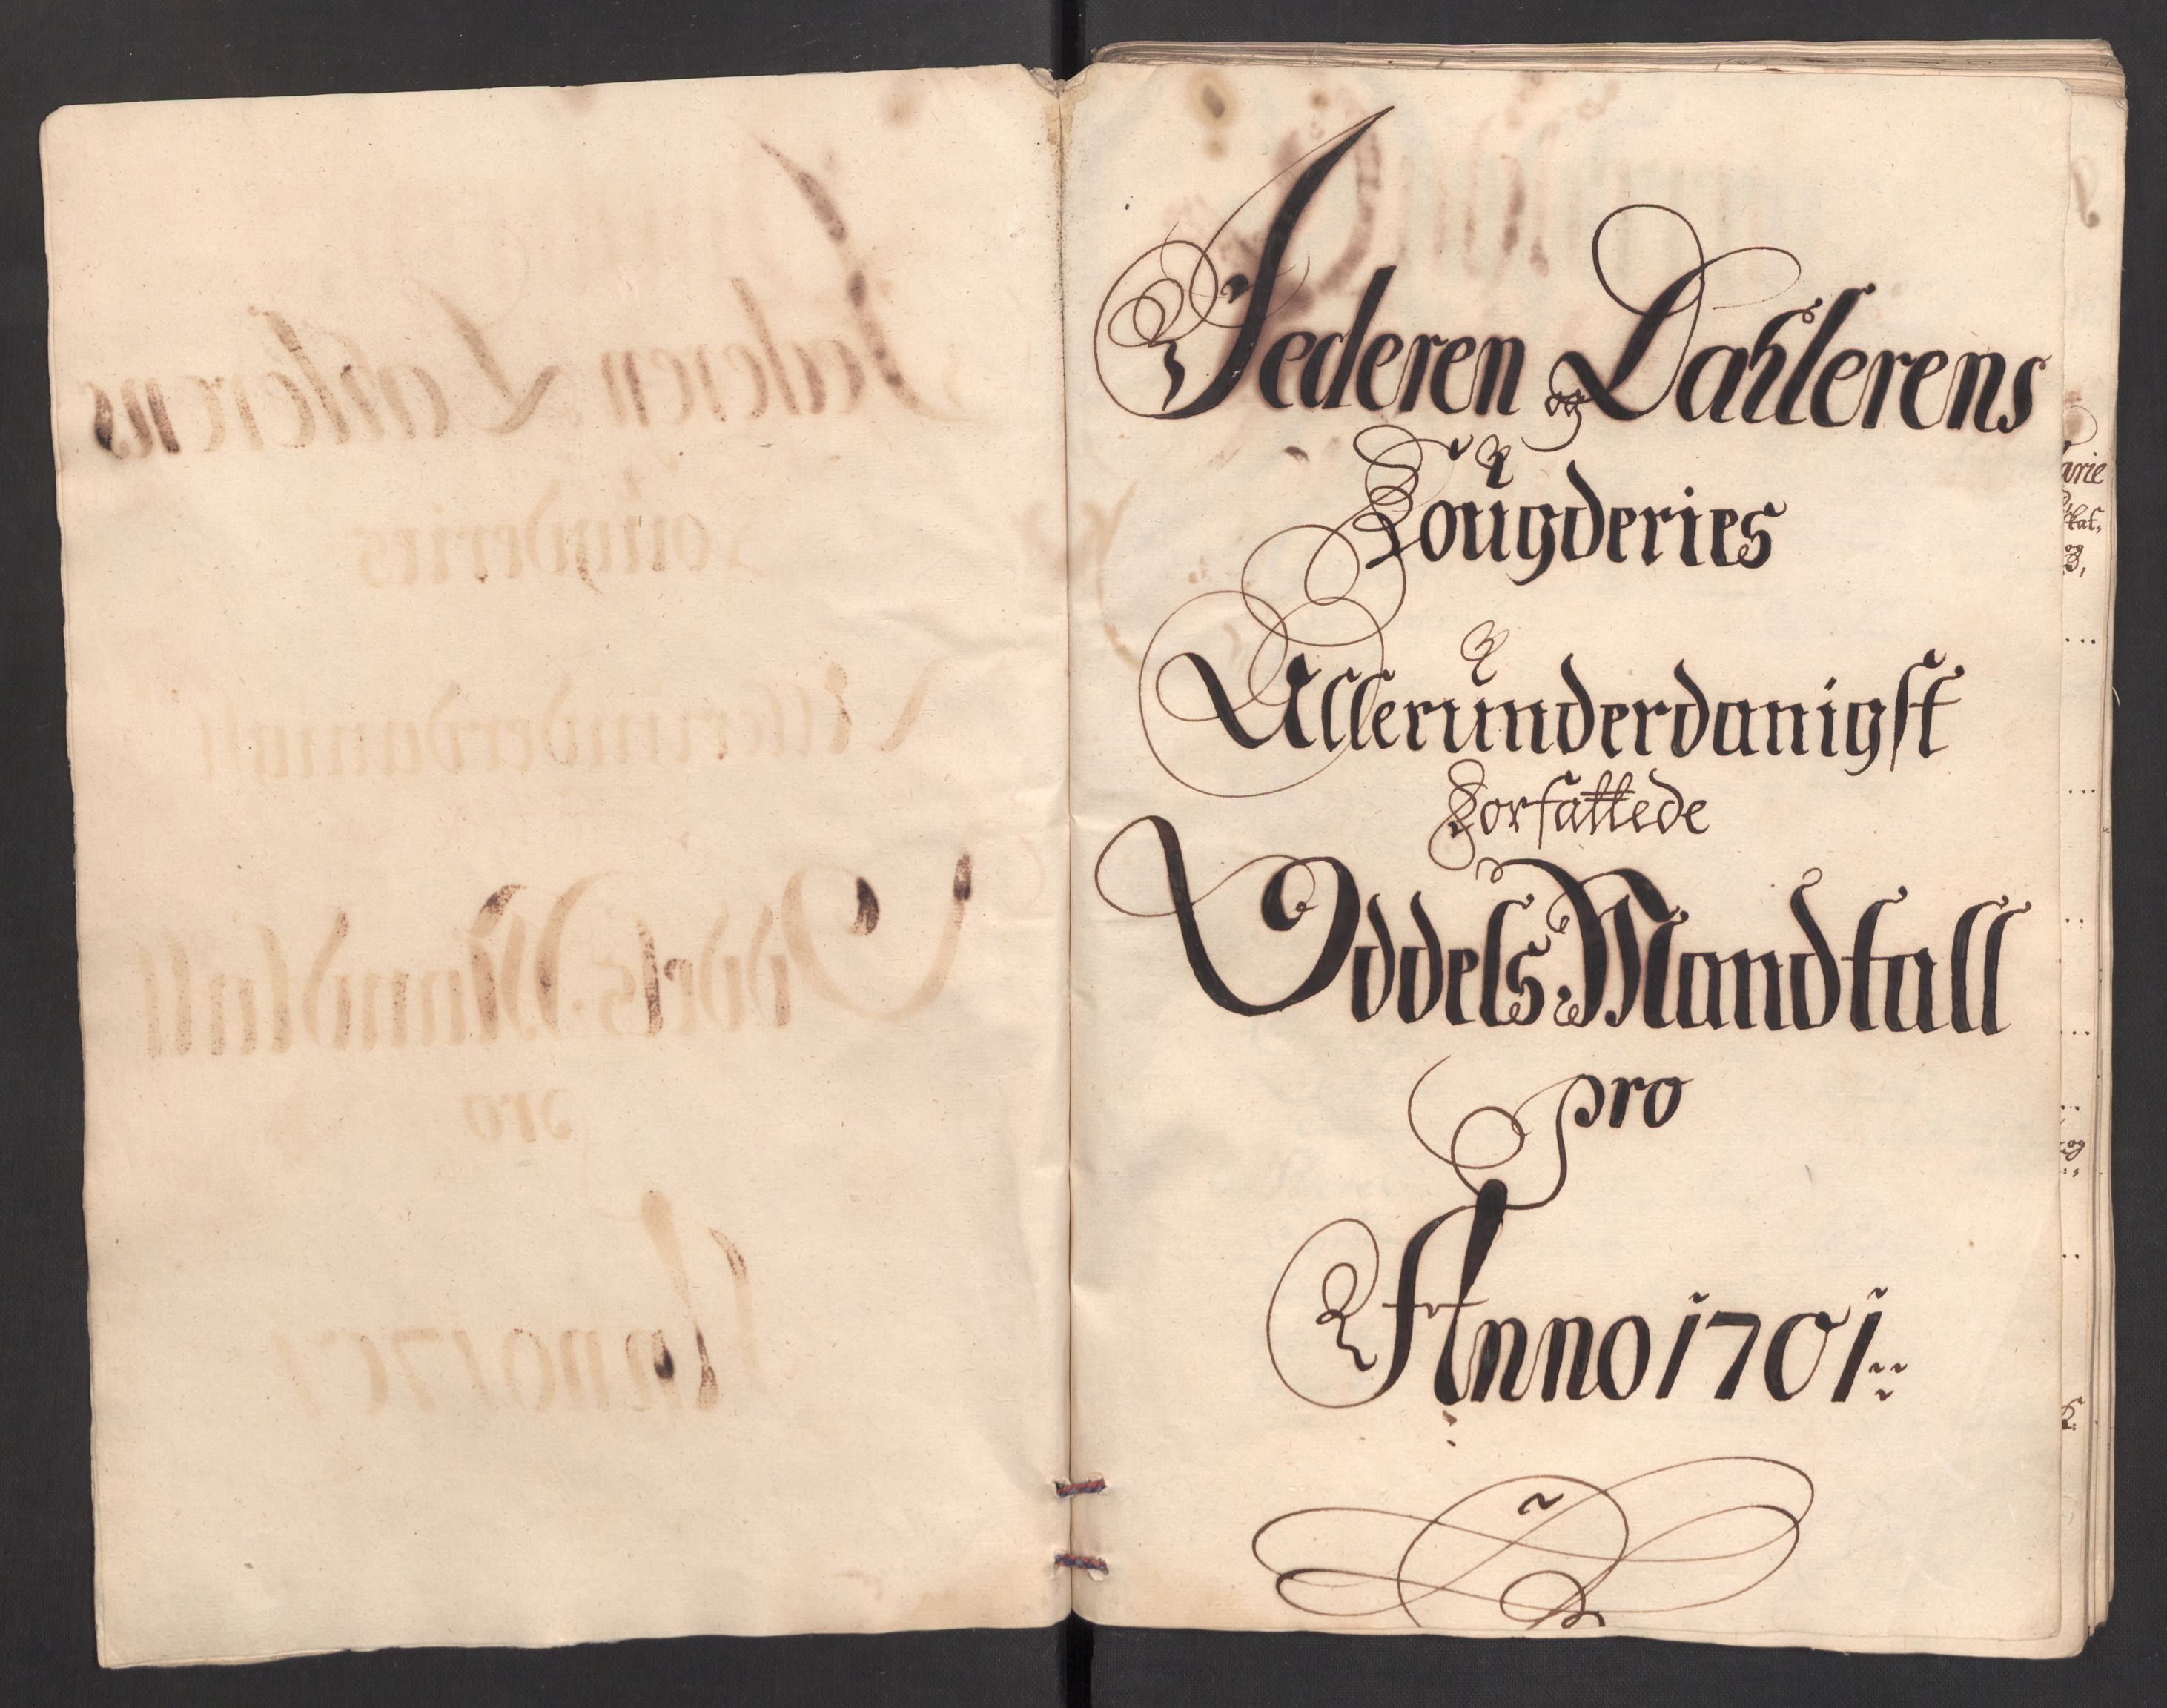 Jederen og Dahlerens
Fougderies
Allerunderdanigst
Forfattede
Oddels Mandtall
pro
Anno 1701